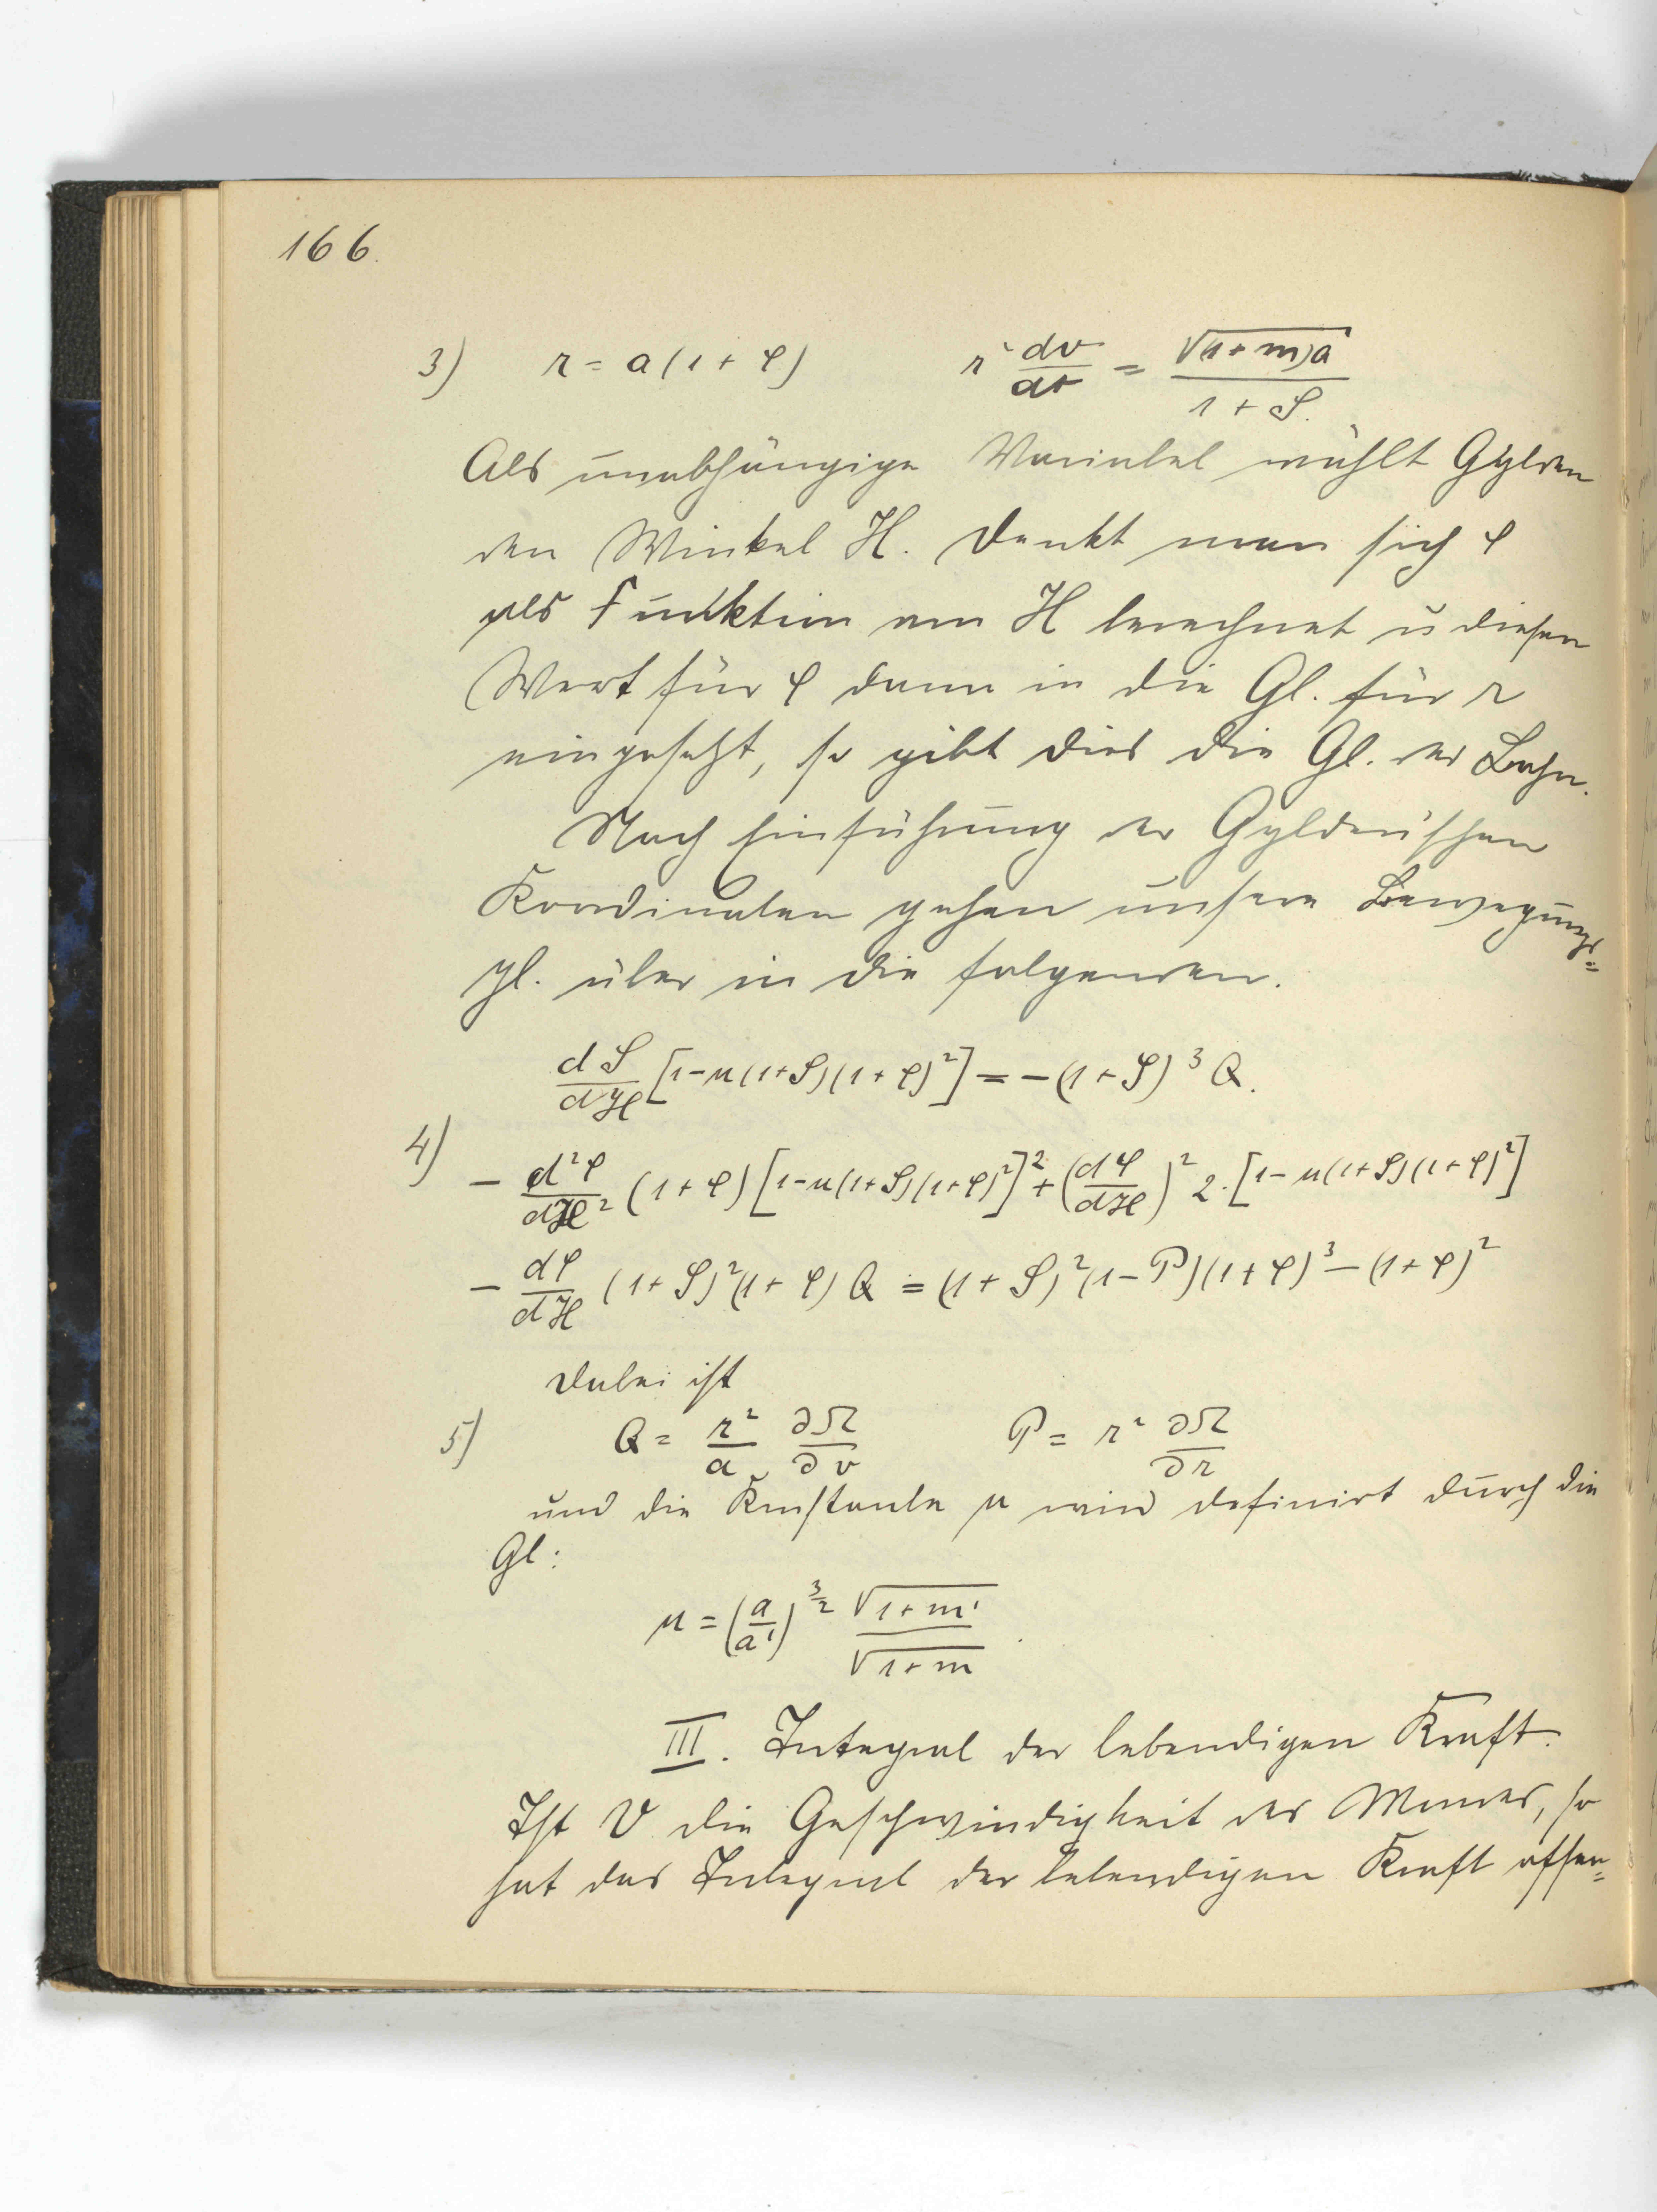 166.
3) r = a(1+φ) r² dv/dt = √(1+m)a / 1+S.
Als unabhängige Variabel wählt Gylden
den Winkel H. Denkt man sich φ
als Funktion von H berechnet u diesen
Wert für φ dann in die Gl. für r
eingesetzt, so gibt dies die Gl. der Bahn.
Nach Einführung der Gylden'schen
Koordinaten gehen unsere Bewegungs=
gl. über in die folgenden.
dS/dH [1-μ(1+S)(1+φ)²] = -(1+S)³ Q.
4)
- d²φ/dH² (1+φ) [1-μ(1+S)(1+φ)²]² + (dφ/dH)² 2·[1-μ(1+S)(1+φ)²]
- dφ/dH (1+S)²(1+φ) Q = (1+S)²(1-P)(1+φ)³ - (1+φ)²
Dabei ist
5) Q = r²/a ∂Ω/∂v P = r² ∂Ω/∂r
und die Konstante μ wird definirt durch die
Gl:
μ = (a/a')^3/2 √1+m' / √1+m.
III. Integral der lebendigen Kraft.
Ist V die Geschwindigkeit des Mondes, so
hat das Integral der lebendigen Kraft offen=